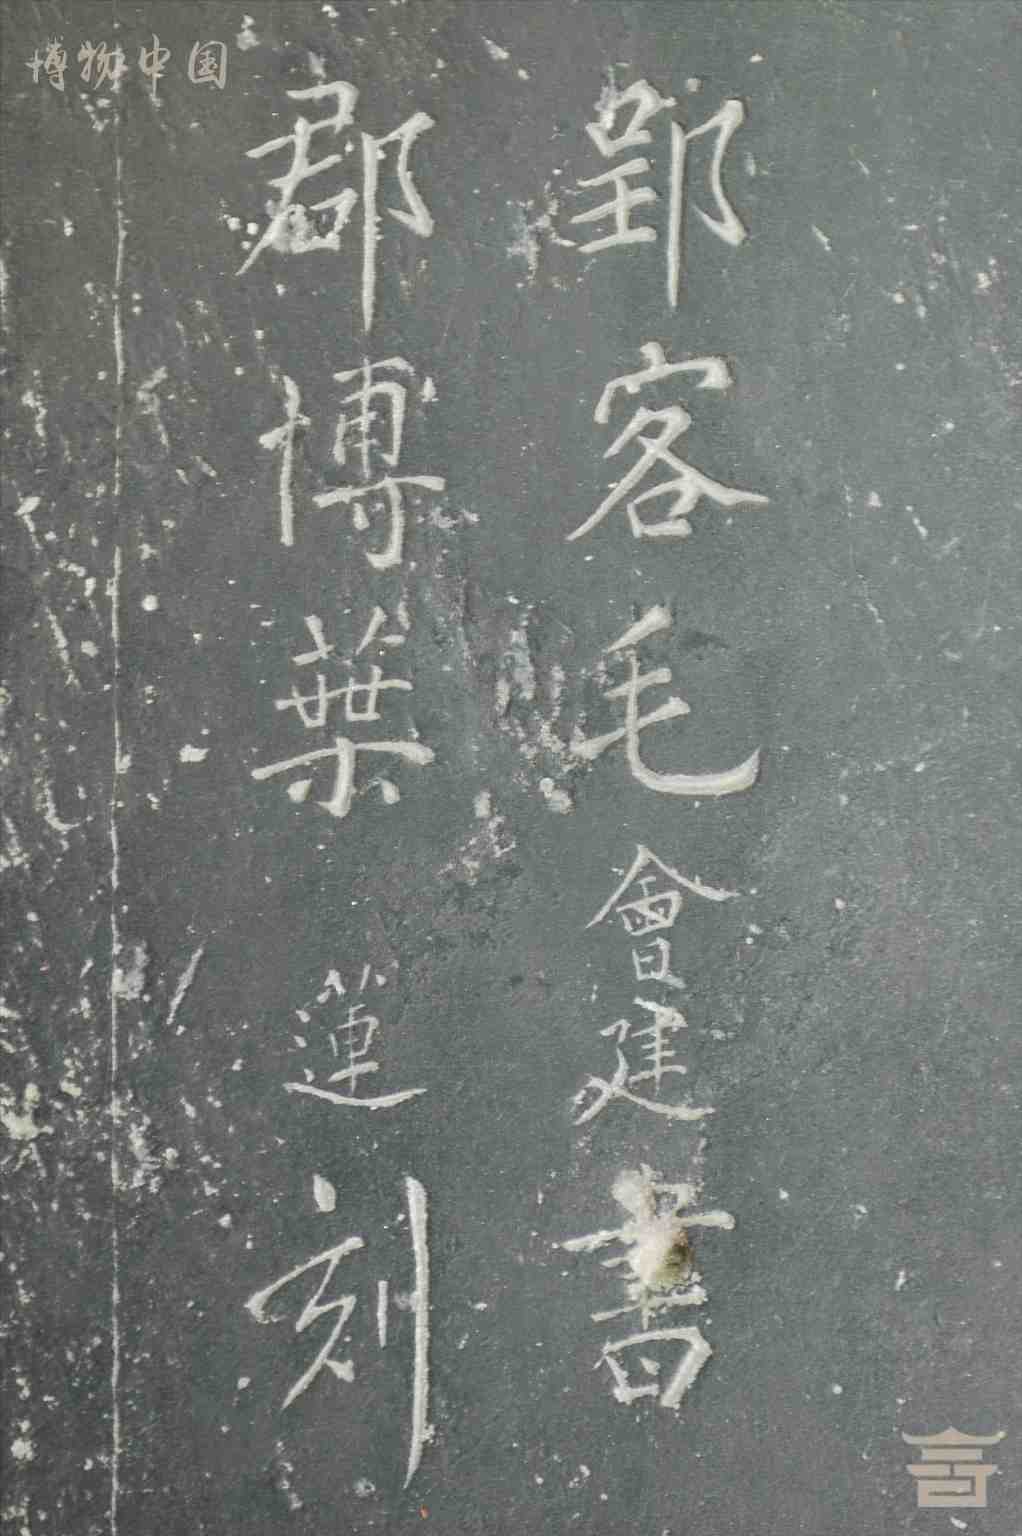 郢客毛會建書
郡博葉蓮刻
博物中国